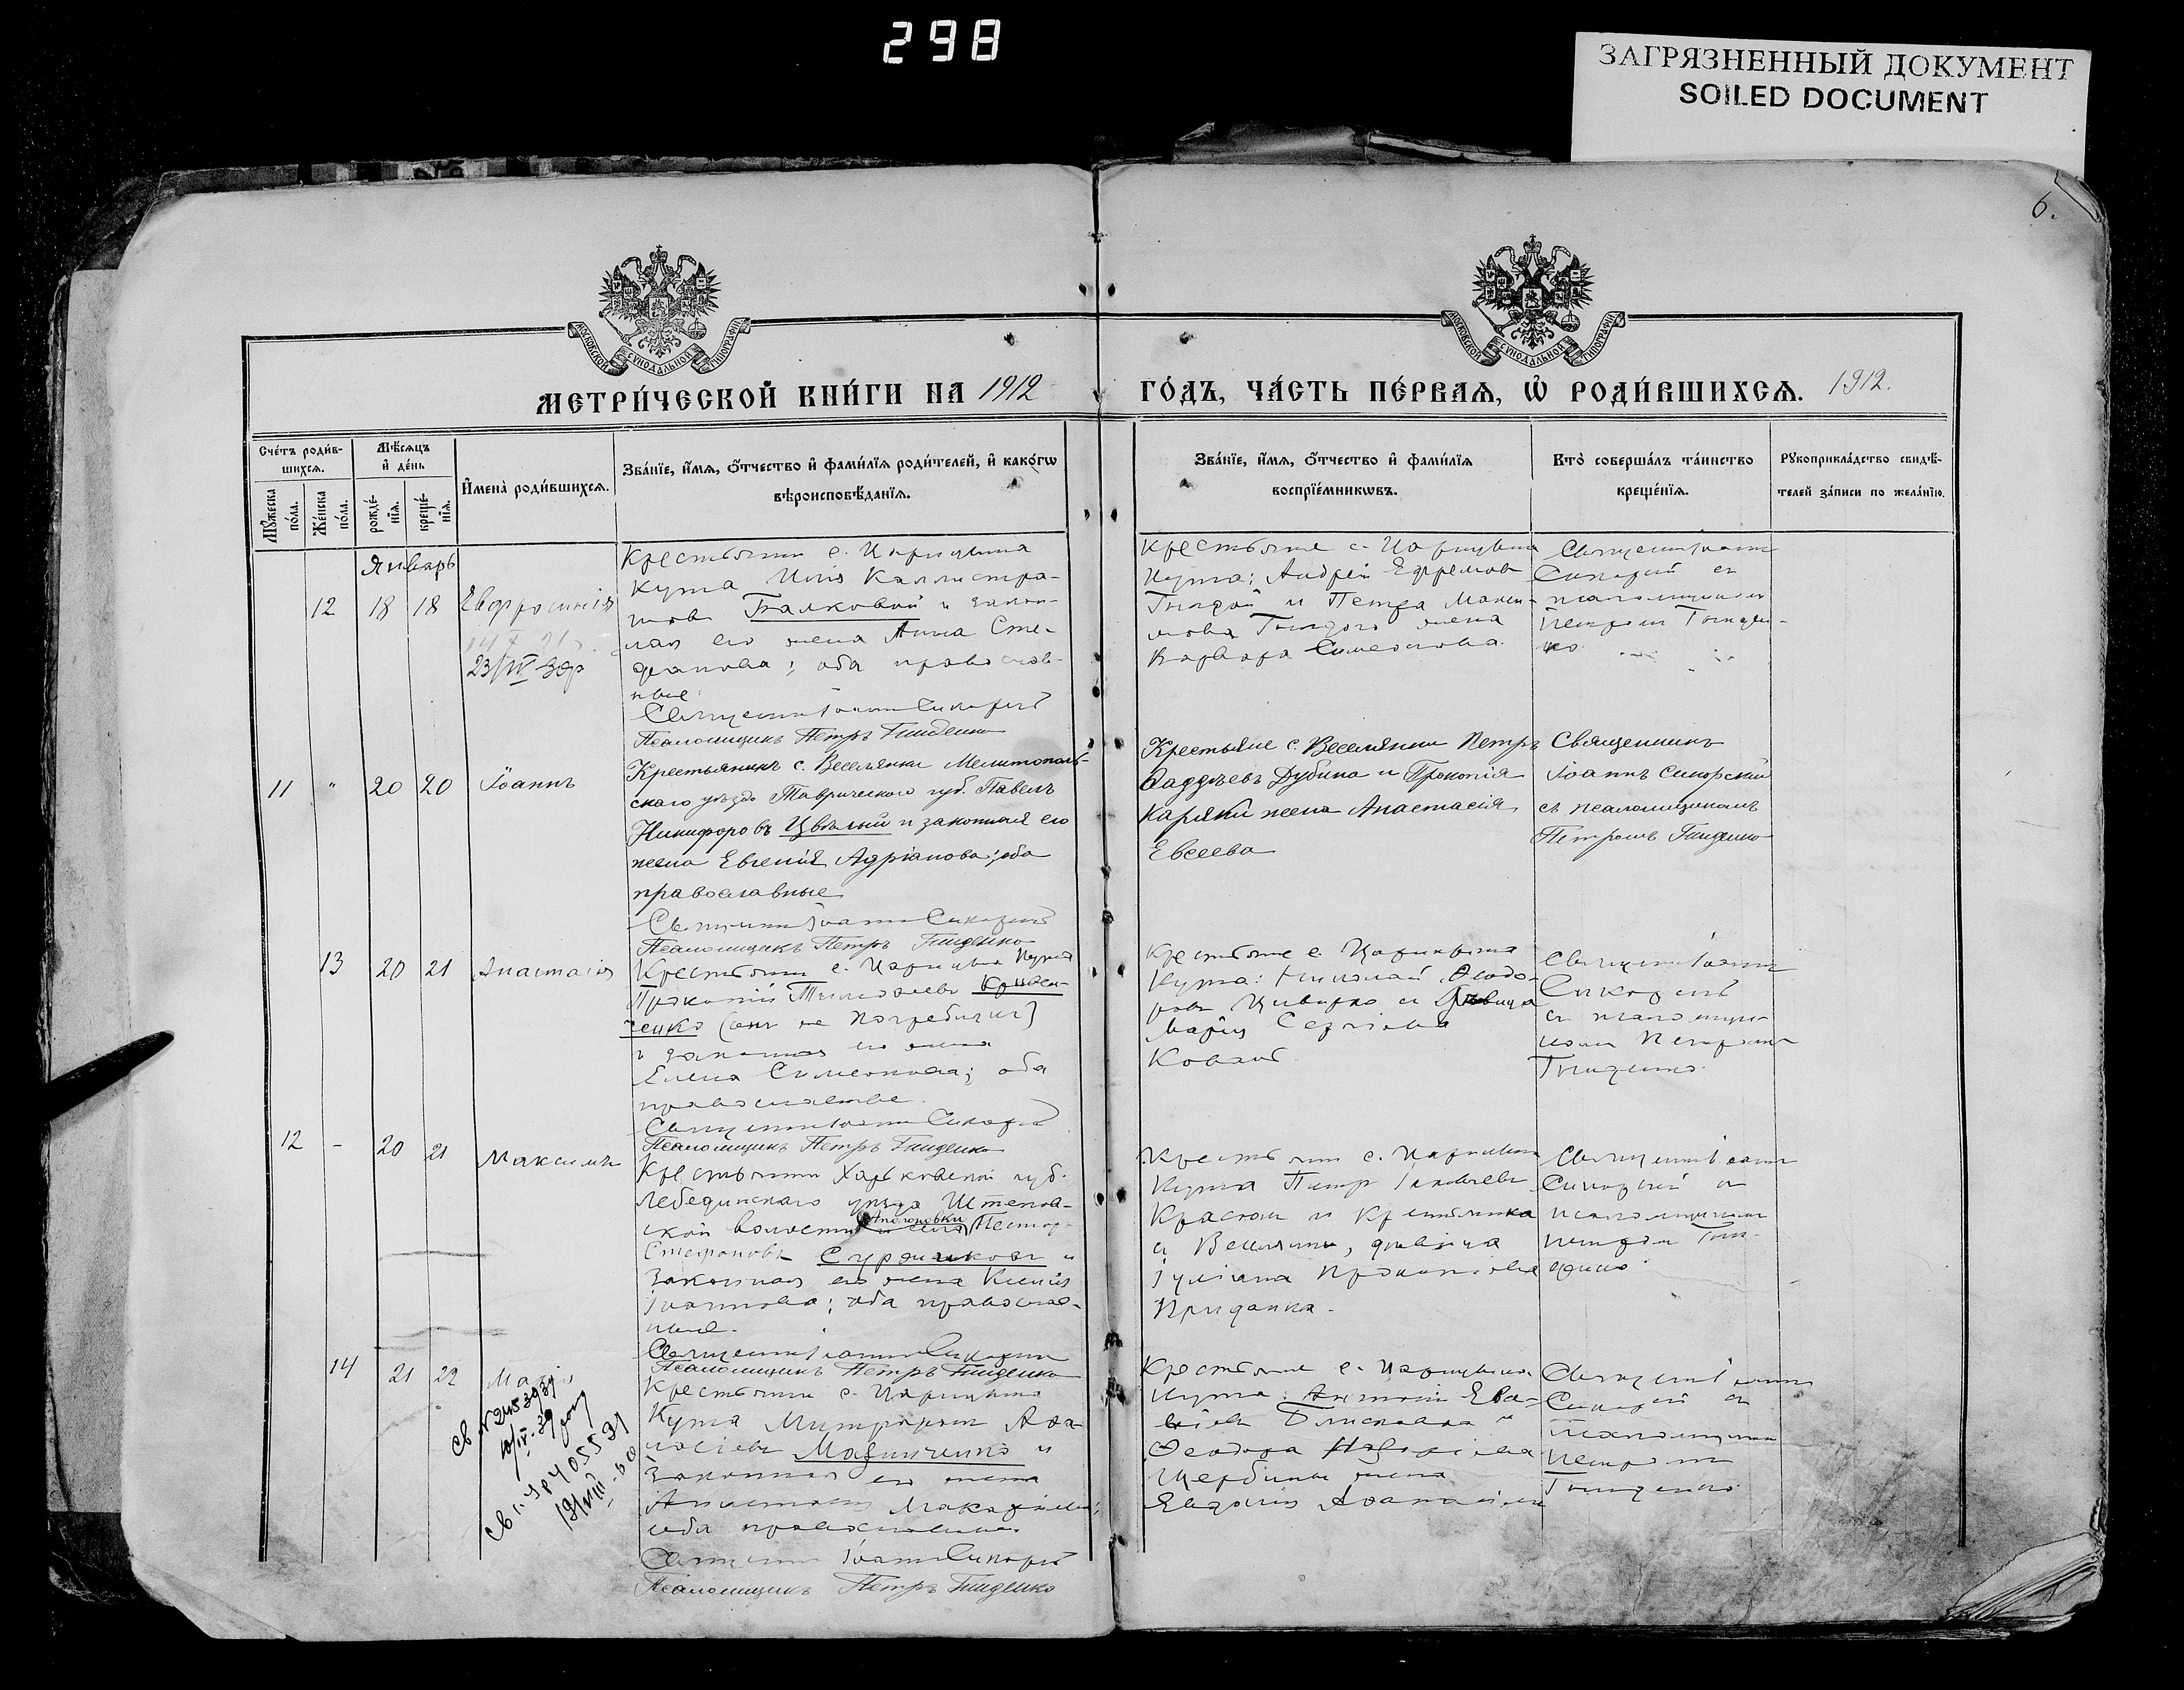 298
ЗАГРЯЗНЕННЫЙ ДОКУМЕНТ
SOILED DOCUMENT
6.
МОСКОВСКОЙ СѴНОДАЛЬНОЙ ТИПОГРАФІИ
МОСКОВСКОЙ СѴНОДАЛЬНОЙ ТИПОГРАФІИ
МЕТРИ́ЧЕСКОЙ КНИ́ГИ НА 1912
ГО́ДЪ, ЧА́СТЬ ПЕ́РВАѦ, Ѡ РОДИ́ВШИХСѦ. 1912.
Сче́тъ роди́в-
шихсѧ.
Мѣ́сѧцъ
и҆ де́нь
Мꙋ́жеска
по́ла.
Же́нска
по́ла.
рожде́-
нїѧ.
креще́-
нїѧ.
И҆мена̀ роди́вшихсѧ.
Зва́нїе, и҆́мѧ, ѻ҆́тчество и҆ фами́лїѧ роди́телей, и҆ како́гѡ
вѣроисповѣ́данїѧ.
Зва́нїе, и҆́мѧ, ѻ҆́тчество и҆ фами́лїѧ
воспрїе́мникѡвъ.
Кто̀ соверша́лъ та́инство
креще́нїѧ.
Рꙋкоприкла́дство свидѣ́-
телей за́писи по жела́нїю.
Январь
12 18 18 Евфросинія
Крестьянин с. Царицына
Кута Илія Каллистра-
тов Балковой и закон-
ная его жена Анна Сте-
фанова; оба православ-
ные
Священник Іоанн Сикорскій
Псаломщикъ Петръ Гниденко
Крестьяне с. Царицына
Кута: Андрей Ефремов
Гнидой и Петра Макси-
мова Гнидого жена
Варвара Симеонова.
Священник Іоанн
Сикорскій съ
псаломщиком
Петром Гниден-
ко.
11 " 20 20 Іоаннъ
Крестьянинъ с. Веселянки Мелитополь-
скаго уѣзда Таврической губ. Павелъ
Никифоровъ Цвѣлый и законная его
жена Евгенія Адріанова; оба
православные
Священник Іоанн Сикорскій
Псаломщикъ Петръ Гниденко
Крестьяне с. Веселянки Петръ
Фаддѣевъ Дубина и Прокопія
Каряки жена Анастасія
Евсеева
Священникъ
Іоаннъ Сикорскій
съ псаломщикомъ
Петромъ Гниденко
13 20 21 Анастасія
Крестьянин с. Царицына Кута
Прокопій Тимофеевъ
(он же Погребняк)
и законная его жена
Елена Симеонова; оба
православные.
Священник Іоанн Сикорскій
Псаломщикъ Петръ Гниденко
Крестьяне с. Царицына
Кута: Николай Феодо-
ров и дѣвица
Марія Сергіева
Коваль.
Священник Іоанн
Сикорскій
съ псаломщи-
ком Петром
Гниденко.
12 - 20 21 Максимъ
Крестьянин Харьковской губ.
Лебединскаго уѣзда Штепов-
ской волости Нестор
Стефановъ и
законная его жена Ксенія
Іоаннова; оба православ-
ные.
Священник Іоанн Сикорскій
Псаломщикъ Петръ Гниденко
Крестьянин с. Царицына
Кута Петр Яковлев
Краснок и крестьянка
с. Веселянки, дѣвица
Іуліана Прокопіева
Приданка.
Священник Іоанн
Сикорскій съ
псаломщиком
Петром Гни-
денко.
14 21 22 Марія
Крестьянин с. Царицына
Кута Митрофан Афа-
насіевъ Мазниченко и
законная его жена
Анастасія Макаріева;
оба православные.
Священник Іоанн Сикорскій
Псаломщикъ Петръ Гниденко
Крестьяне с. Царицына
Кута: Антоній
и
Феодора
Щербины жена
Евдокія Афанасіева
Священник Іоанн
Сикорскій съ
псаломщиком
Петром
Гниденко.